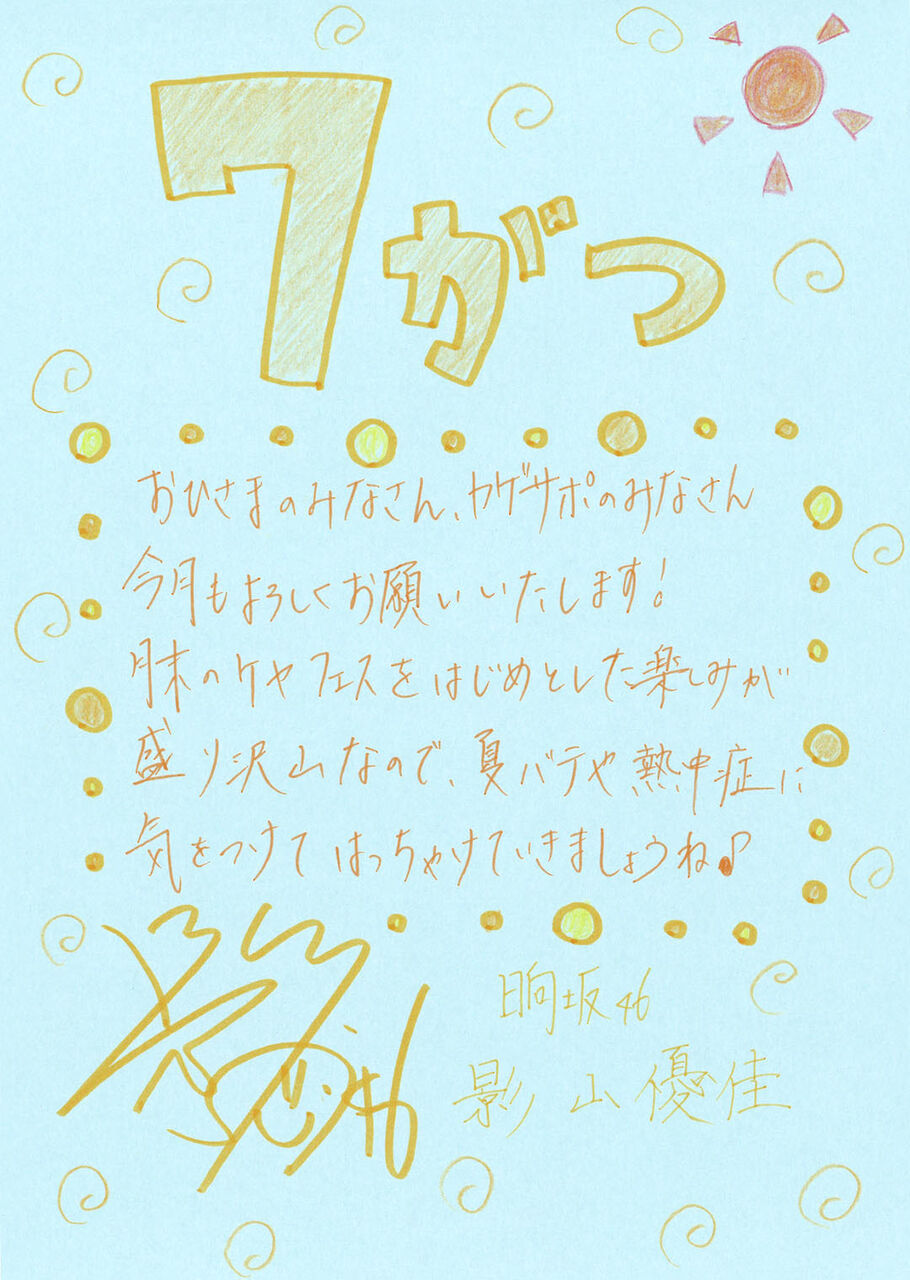 7がつ
おひさまのみなさん、カゲサポのみなさん
今月もよろしくお願いいたします!
月末のケヤフェスをはじめとした楽しみが
盛り沢山なので、夏バテや熱中症に
気をつけてはっちゃけていきましょうね♪
日向坂46
影山優佳